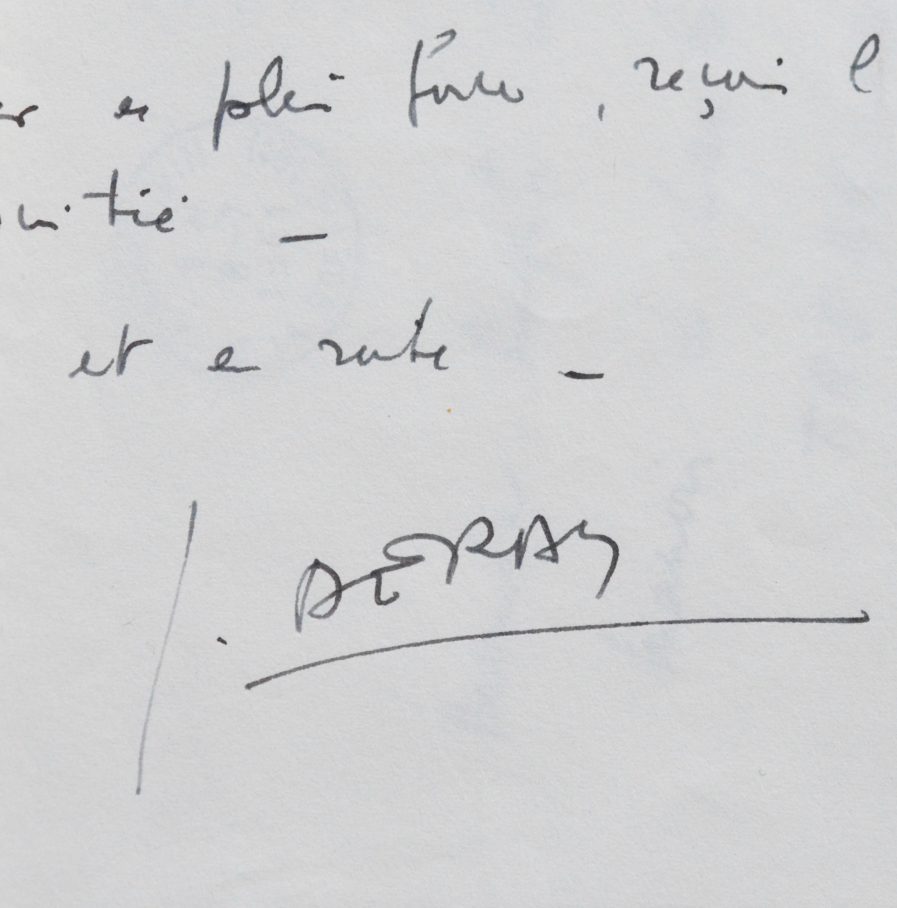 en plein force, reçois l
mitié —
et en route —
J. DERAY